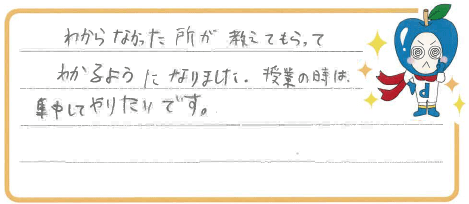 わからなかった所が教えてもらって
わかるようになりました。授業の時は、
集中してやりたいです。
d